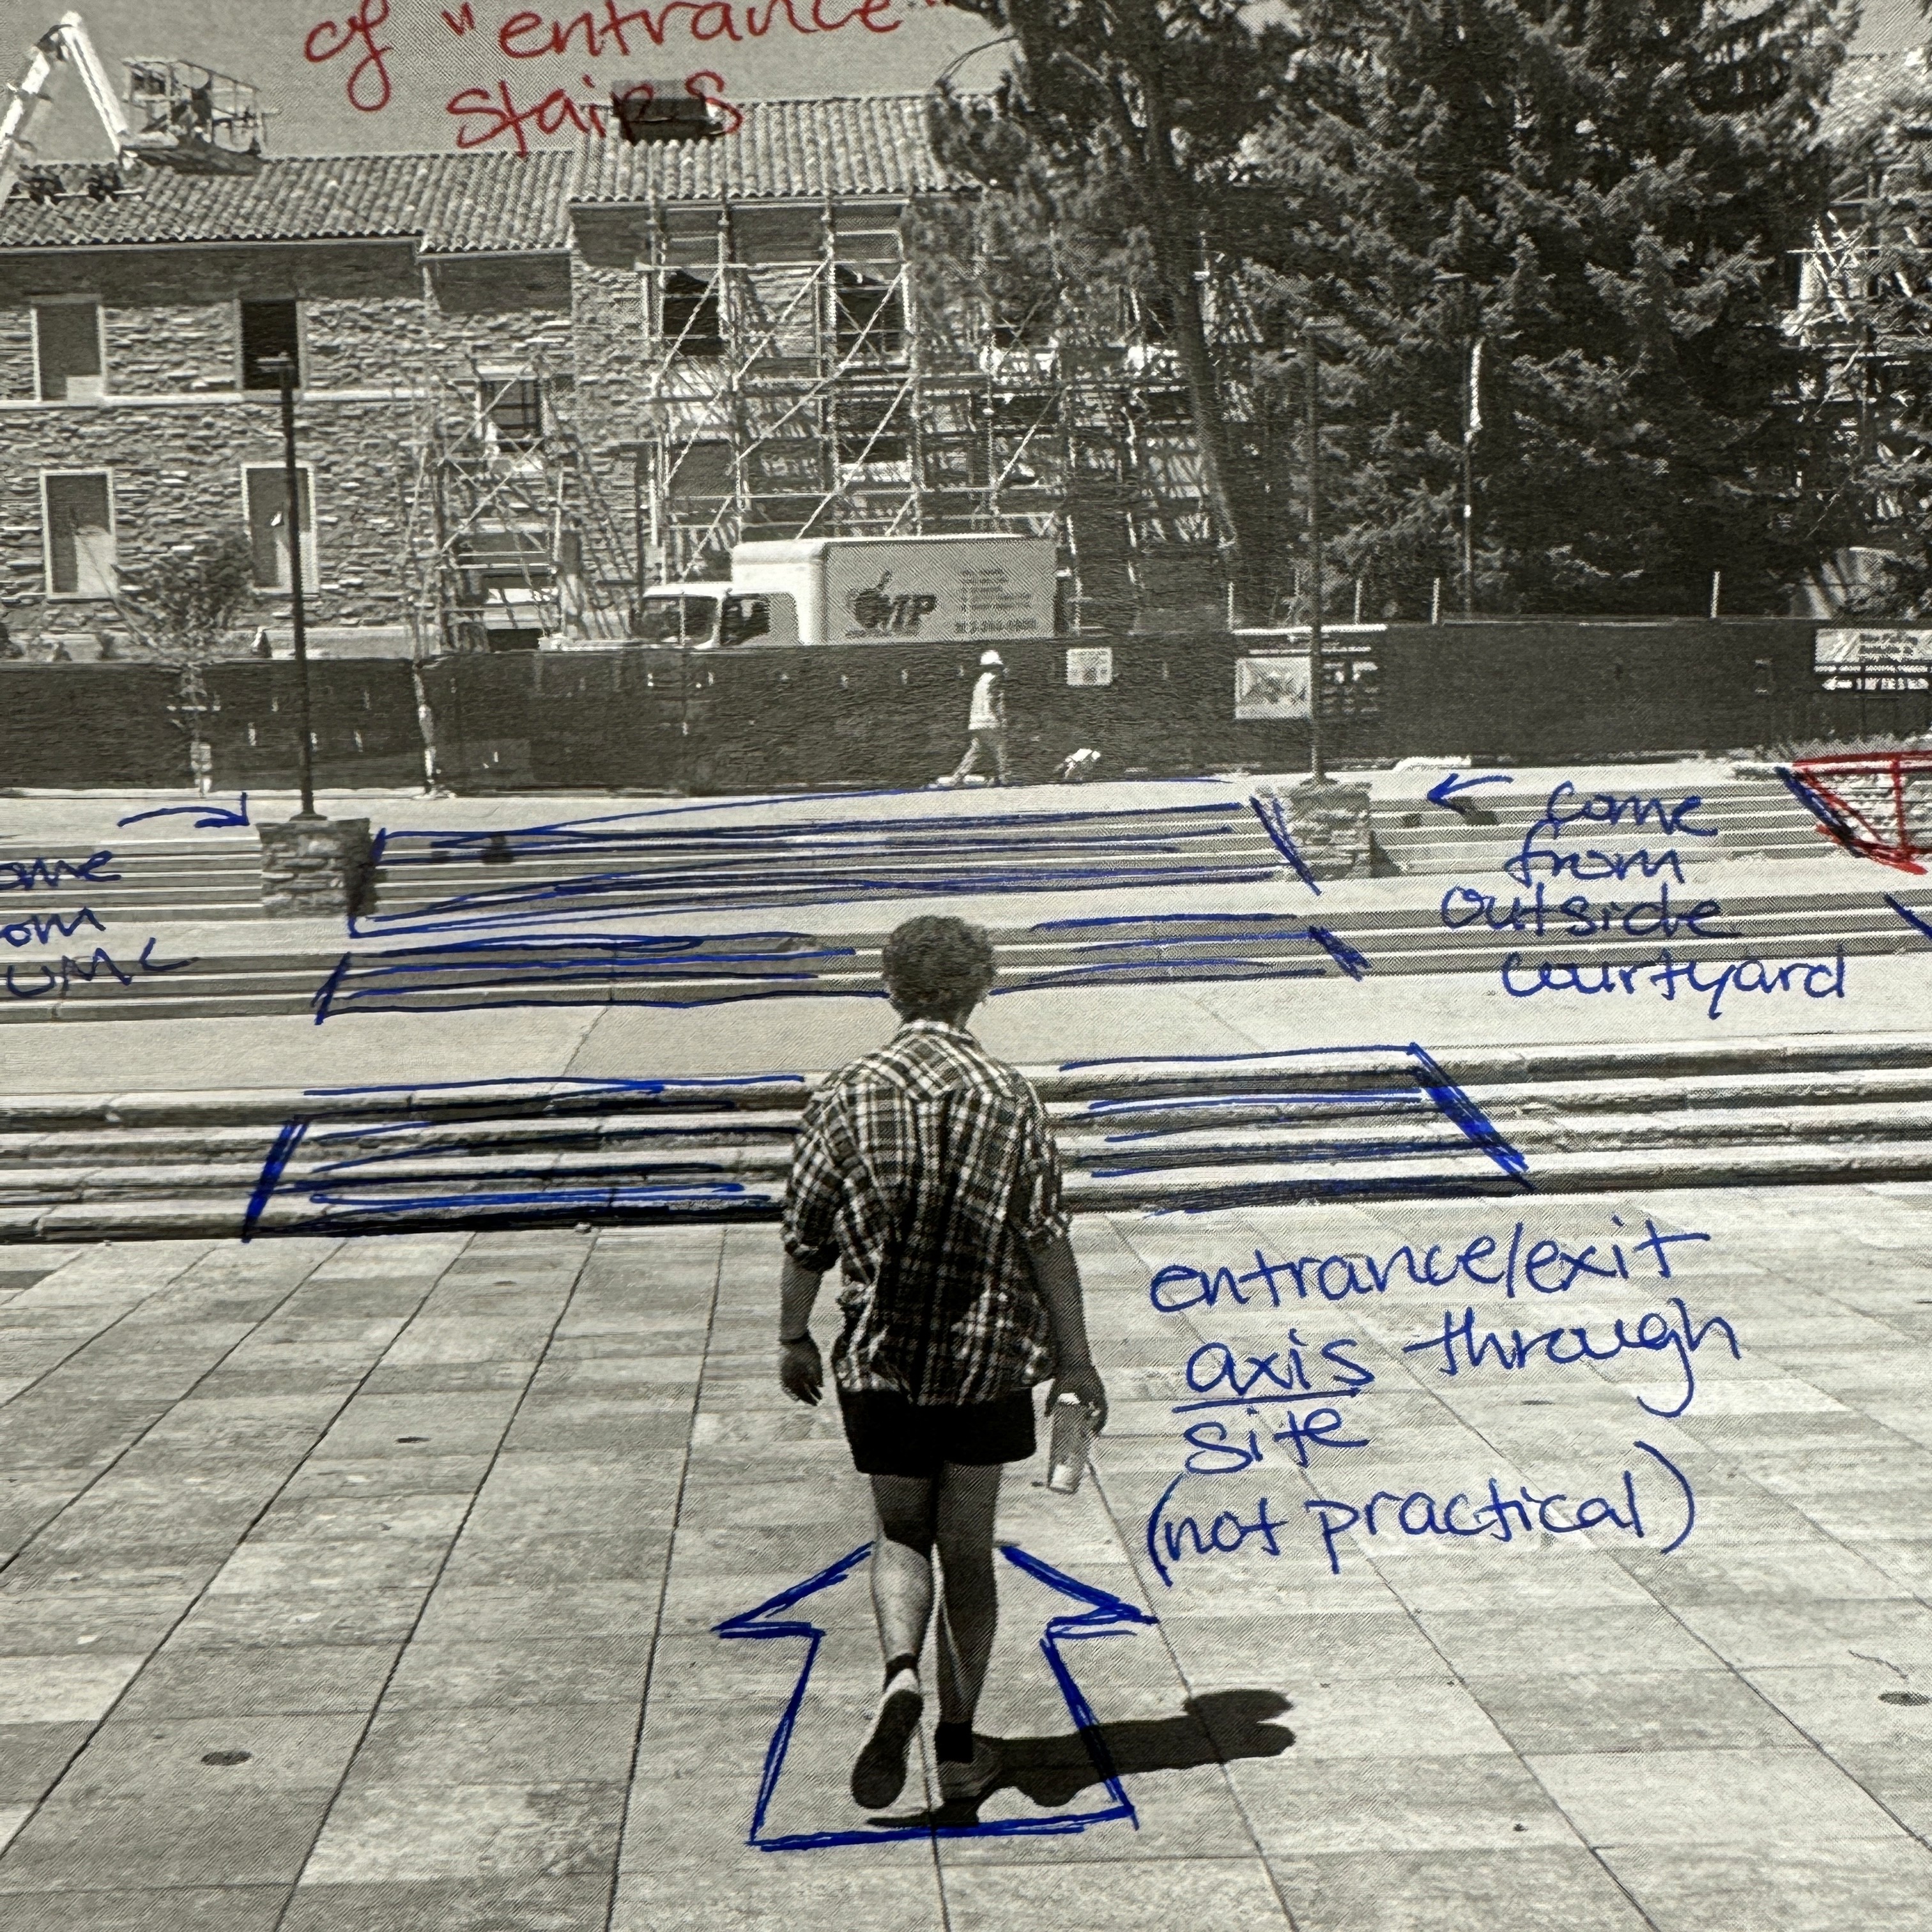 of "entrance"
stairs
TP
come
from
outside
courtyard
ome
om
UMC
entrance/exit
axis through
site
(not practical)